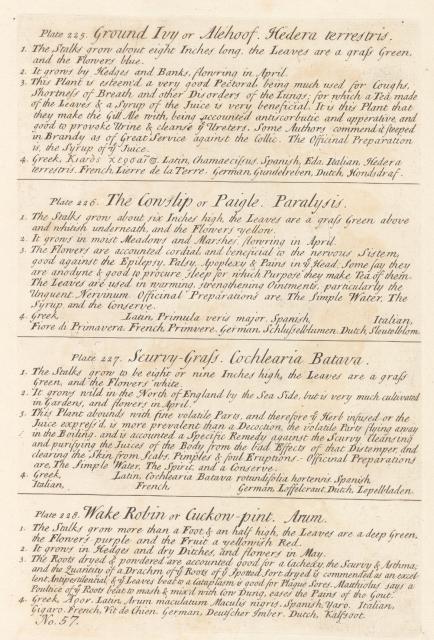 Plate 225. Ground Ivy or Alehoof. Hedera terrestris.
1. The Stalks grow about eight Inches long, the Leaves are a graſs Green,
and the Flowers blue.
2. It grows by Hedges and Banks, flowring in April.
3. This Plant is esteem'd a very good Pectoral, being much used for Coughs,
Shortneſs of Breath, and other Disorders of the Lungs; for which a Tea made
of the Leaves & a Syrup of the Juice is very beneficial. It is this Plant that
they make the Gill Ale with, being accounted antiscorbutic and apperative, and
good to provoke Urine & cleanse yͤ Ureters. Some Authors commend it steeped
in Brandy as of Great Service against the Collic. The Officinal Preparation
is, the Syrup of yͤ Juice.
4. Greek, Latin, Chamaeciſsus, Spanish, Eda. Italian, Hedera
terrestris. French, Lierre de la Terre. German, Gundelreben, Dutch, Hondsdraf.
Plate 226. The Cowslip or Paigle. Paralysis.
1. The Stalks grow about six Inches high, the Leaves are a graſs Green above
and whitish underneath, and the Flowers yellow.
2. It grows in moist Meadows and Marshes, flowring in April.
3. The Flowers are accounted cordial and beneficial to the nervous Sistem,
good against the Epilepsy, Palsy, Apoplexy & Pains in yͤ Head. Some say they
are anodyne & good to procure Sleep for which Purpose they make Tea of them.
The Leaves are used in warming, strengthening Ointments, particularly the
Unguent. Nervinum. Officinal Preparations are, The Simple Water, The
Syrup and the Conserve.
4. Greek, Latin, Primula veris major. Spanish, Italian,
Fiore di Primavera. French, Primvere. German, Schluſselblumen. Dutch, Sleutelblom.
Plate 227. Scurvy-Graſs. Cochlearia Batava.
1. The Stalks grow to be eight or nine Inches high, the Leaves are a graſs
Green, and the Flowers white.
2. It grows wild in the North of England by the Sea Side, but is very much cultivated
in Gardens, and flowers in April.
3. This Plant abounds with fine volatile Parts, and therefore yͤ Herb infused or the
Juice expreſs'd, is more prevalent than a Decoction, the volatile Parts flying away
in the Boiling, and is accounted a Specific Remedy against the Scurvy, Cleansing
and purifying the Juices of the Body from the bad Effects of that Distemper, and
clearing the Skin from Scabs, Pimples & foul Eruptions. Officinal Preparations
are, The Simple Water, The Spirit, and a Conserve.
4. Greek, Latin, Cochlearia Batava rotundifolia hortensis. Spanish,
Italian, French, German, Loffelcraut. Dutch, Lepelbladen.
Plate 228. Wake Robin or Cuckow-pint. Arum.
1. The Stalks grow more than a Foot & an half high, the Leaves are a deep Green,
the Flowers purple and the Fruit a yellowish Red.
2. It grows in Hedges and dry Ditches, and flowers in May.
3. The Roots dryed & powdered are accounted good for a Cachexy, the Scurvy & Asthma;
and the Quantity of a Drachm of yͤ Roots of yͤ Spotted sort dryed is commended as an excel-
lent Antipestilential, & yͤ Leaves beat to a Cataplasm is good for Plague Sores. Matthiolus says a
Poultice of yͤ Roots beat to mash & mix'd with Cow Dung, eases the Pains of the Gout.
4. Greek, Latin, Arum maculatum Maculis nigris. Spanish, Yaro. Italian,
Gigaro. French, Vit de Chien. German, Deutscher Imber. Dutch, Kalfsoot.
No. 57.